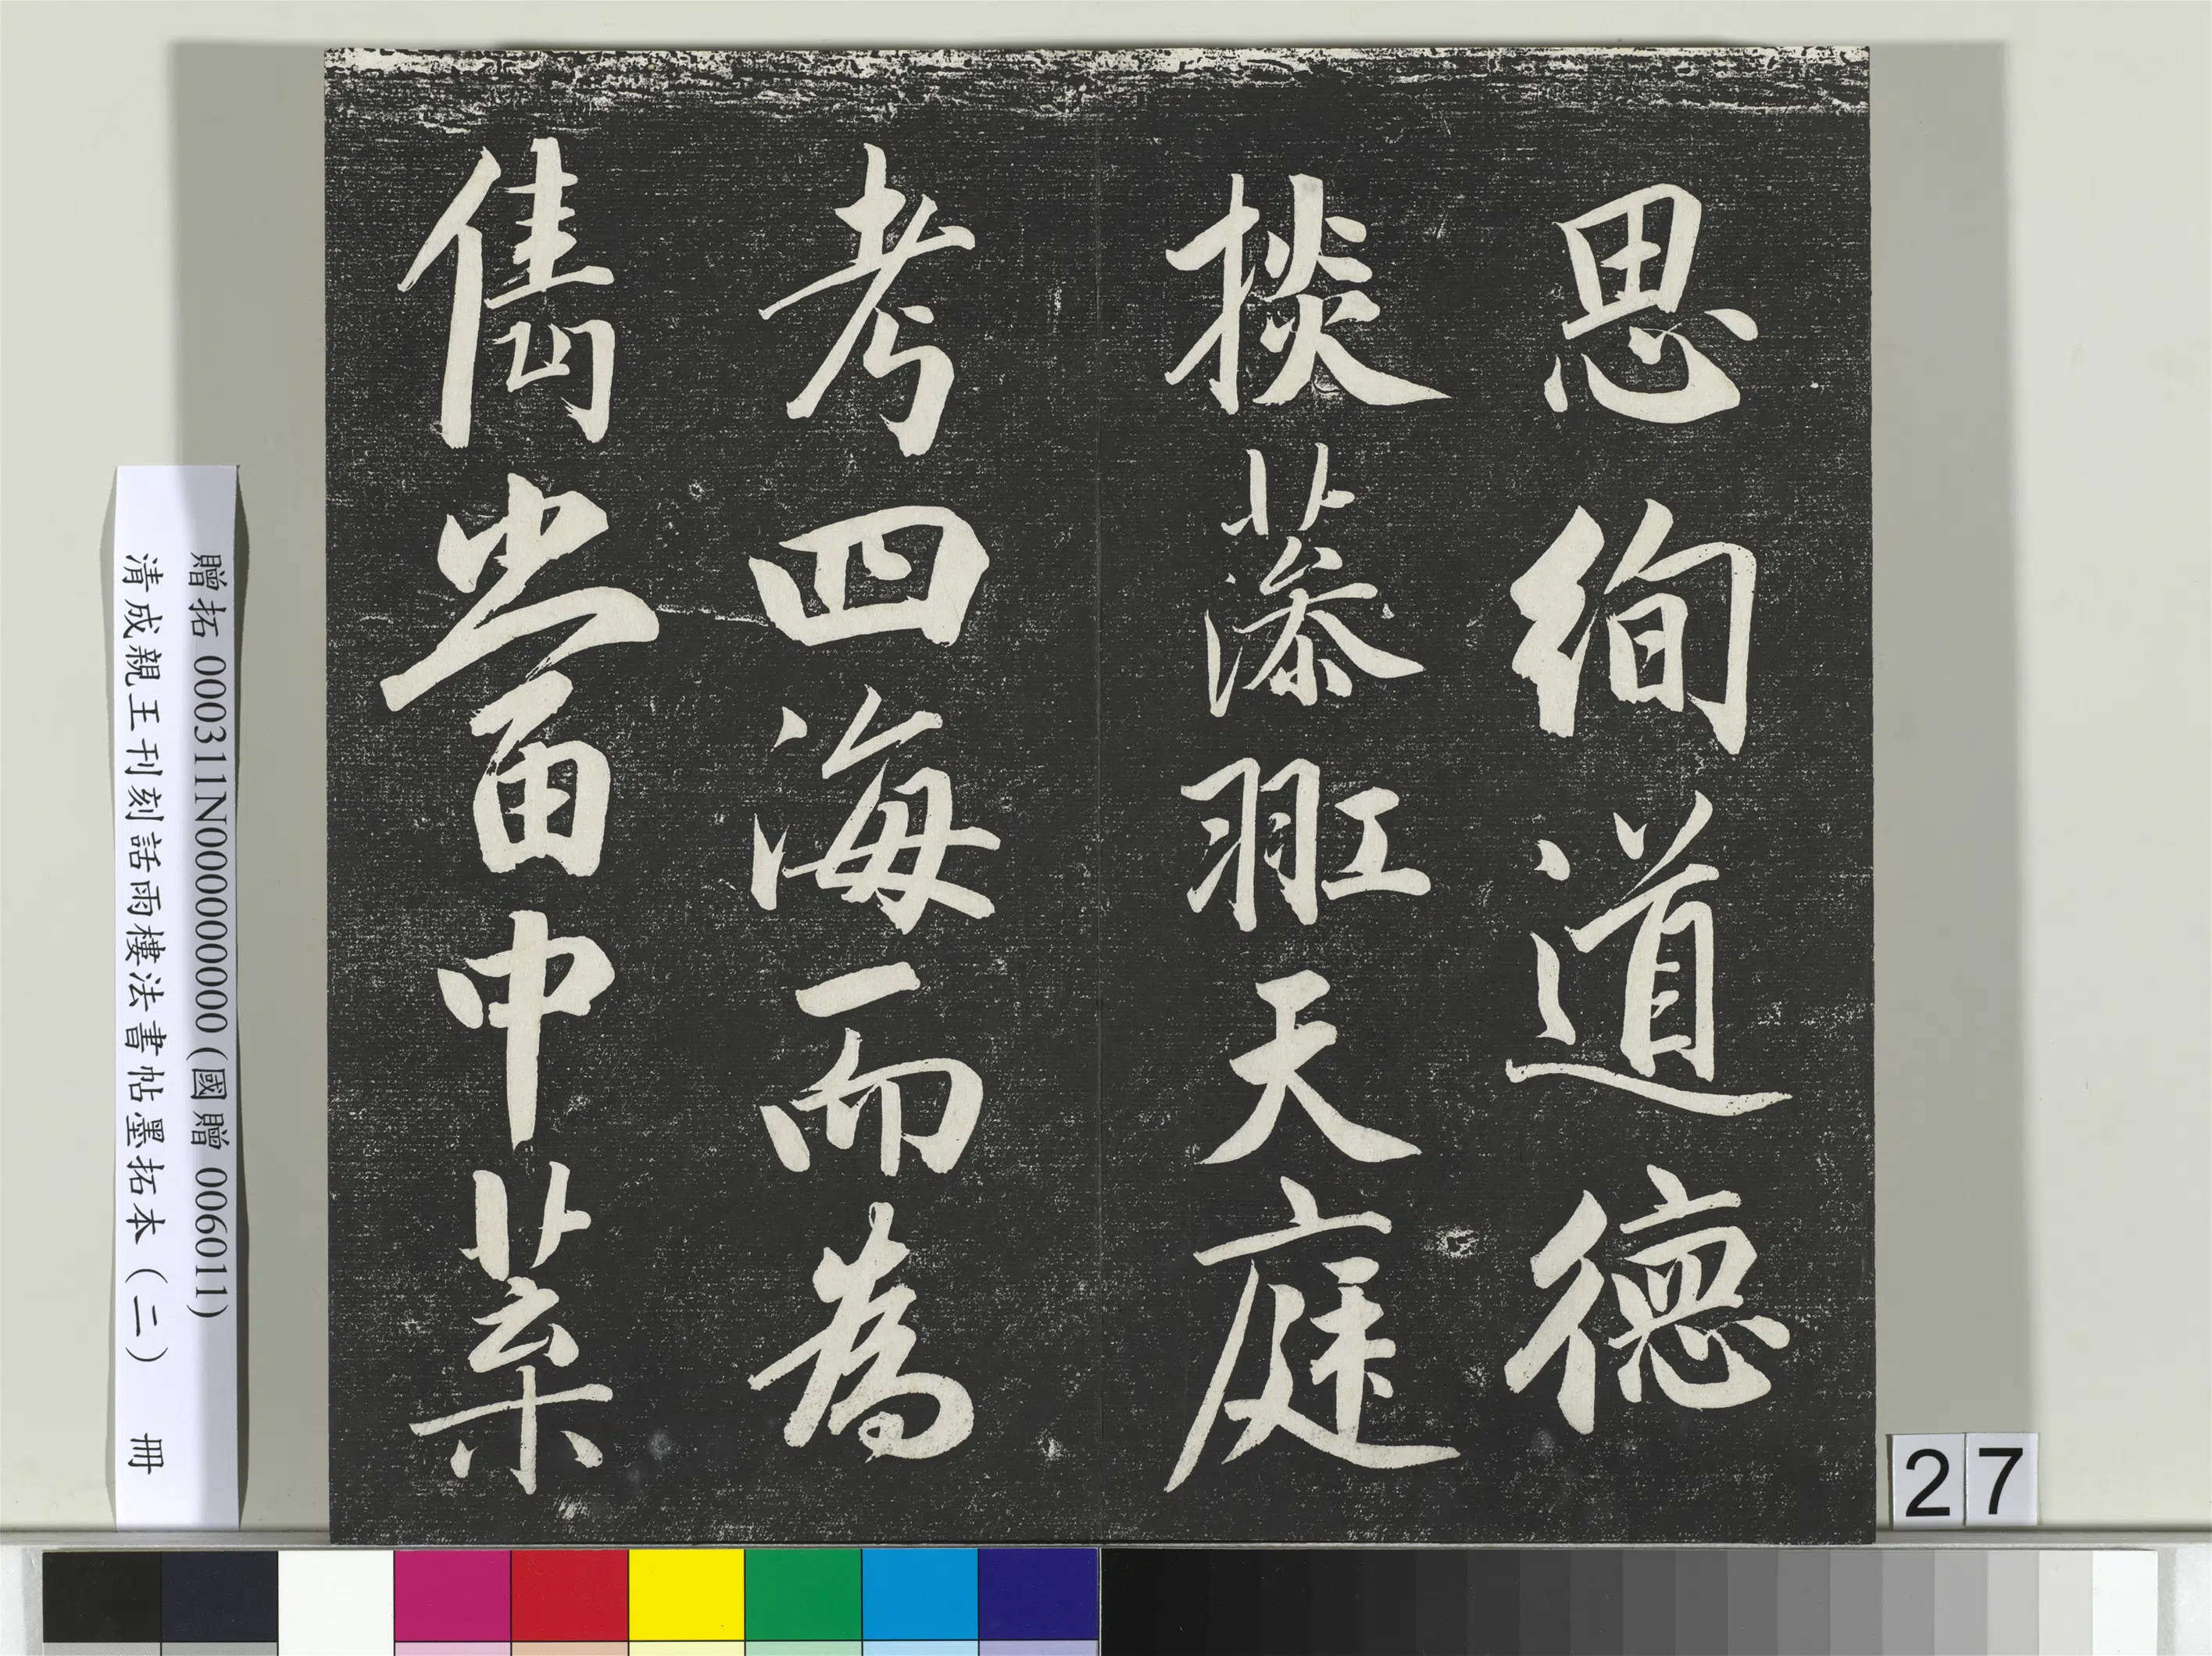 思絢道德
掞藻羾天庭
考四海而為
儁當中葉
贈拓 000311N000000000 (國贈 006011)
清成親王刊刻話雨樓法書帖墨拓本(二) 冊
27